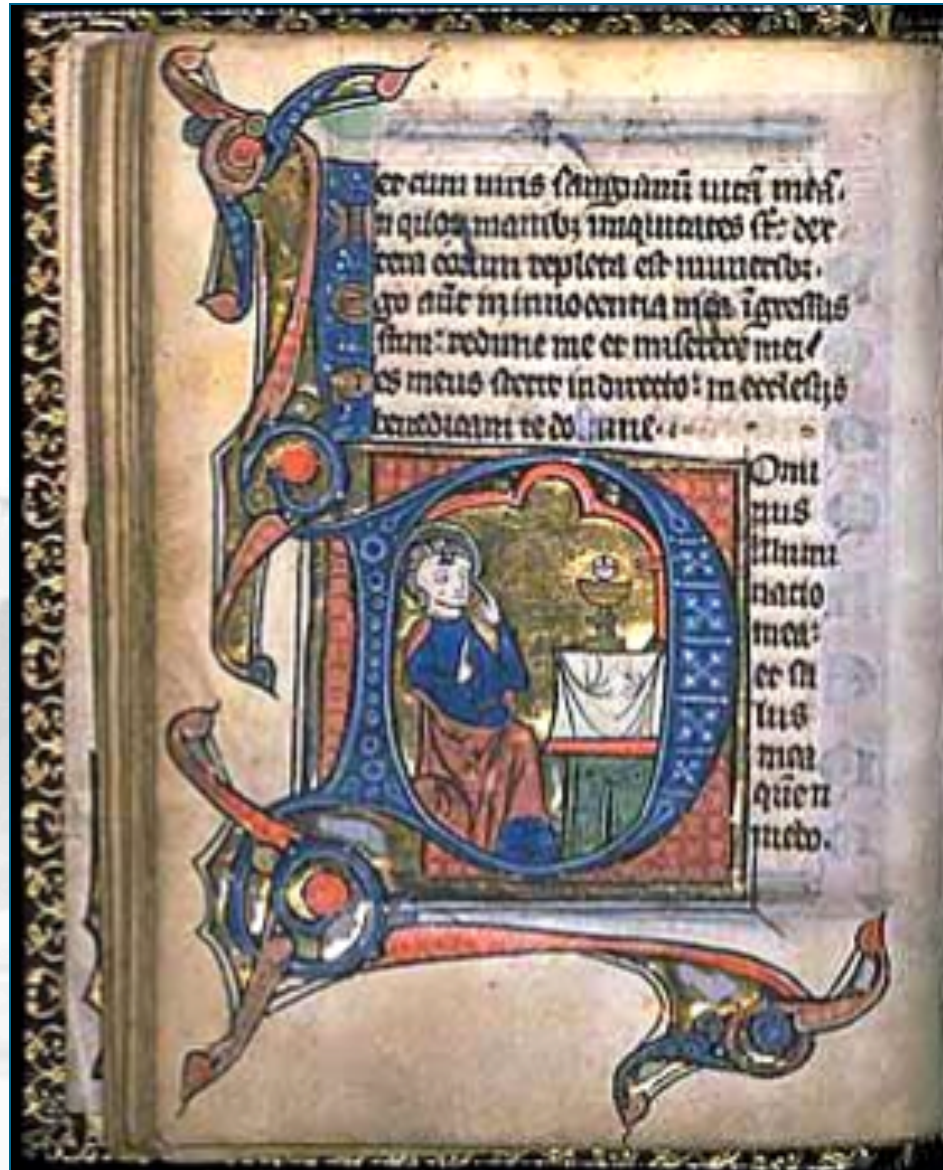 et cum viris sanguinū vitā meā.
In quoꝝ manibꝫ iniquitates sͭ: dex
tera eorum repleta est muneribꝫ.
Ego aūt in innocentia mea īgressus
sum: redime me et miserere mei
Pes meus stetit in directo: in ecclesiis
benedicam te domine.
Domi
nus
illumi
natio
mea:
et sa
lus
mea
quē
timebo.